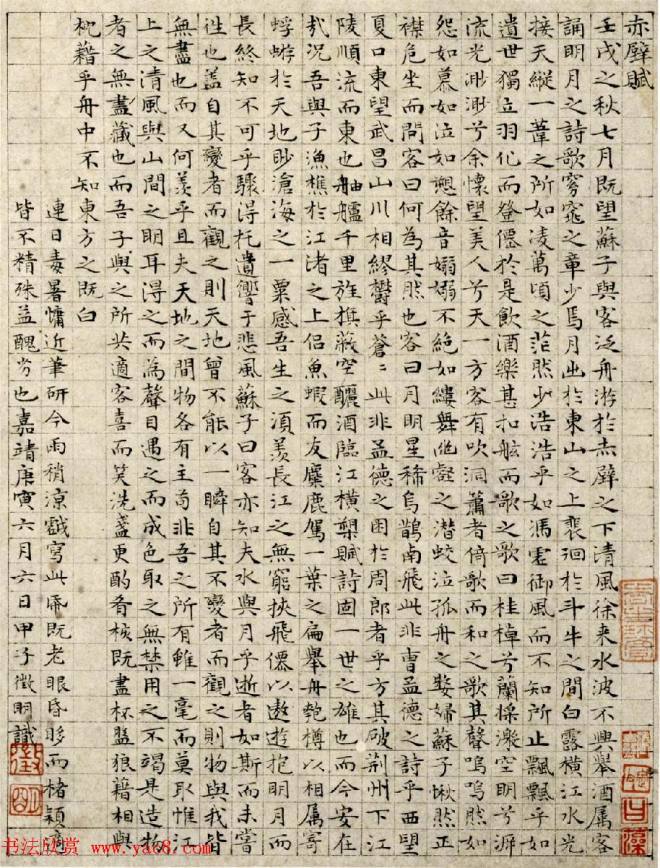 赤壁賦
壬戌之秋七月既望蘇子與客泛舟游於赤壁之下清風徐來水波不興舉酒属客
誦明月之詩歌窈窕之章少焉月出於東山之上裴洄於斗牛之間白露橫江水光
接天縱一葦之所如凌萬頃之茫然少浩浩乎如馮虛御風而不知所止飄飄乎如
遺世獨立羽化而登僊於是飲酒樂甚扣舷而歌之歌曰桂棹兮蘭槳擊空明兮泝
流光渺渺兮余懷望美人兮天一方客有吹洞簫者倚歌而和之歌其聲嗚嗚然如
怨如慕如泣如愬餘音嫋嫋不絕如縷舞幽壑之潛蛟泣孤舟之嫠婦蘇子愀然正
襟危坐而問客曰何為其然也客曰月明星稀烏鵲南飛此非曹孟德之詩乎西望
夏口東望武昌山川相繆鬱乎蒼〻此非孟德之困於周郎者乎方其破荆州下江
陵順流而東也舳艫千里旌旗蔽空釃酒臨江橫槊賦詩固一世之雄也而今安在
哉況吾與子漁樵於江渚之上侶魚蝦而友麋鹿駕一葉之扁舉舟匏樽以相属寄
蜉蝣於天地眇滄海之一粟感吾生之須羨長江之無窮挾飛僊以遨遊抱明月而
長終知不可乎驟得托遺響于悲風蘇子曰客亦知夫水與月乎逝者如斯而未嘗
往也盖自其變者而觀之則天地曾不能以一瞬自其不變者而觀之則物與我皆
無盡也而又何羨乎且夫天地之間物各有主苟非吾之所有雖一毫而莫取惟江
上之清風與山間之明耳得之而為聲目遇之而成色取之無禁用之不竭是造物
者之無盡藏也而吾子與之所共適客喜而笑洗盞更酌肴核既盡杯盤狼藉相與
枕藉乎舟中不知東方之既白
連日毒暑慵近筆研今雨稍涼戲寫此𠕋既老眼昏眵而楮穎適
皆不精殊益醜劣也嘉靖庚寅六月六日甲子徵明識
徵明
书法欣赏 www.yac8.com